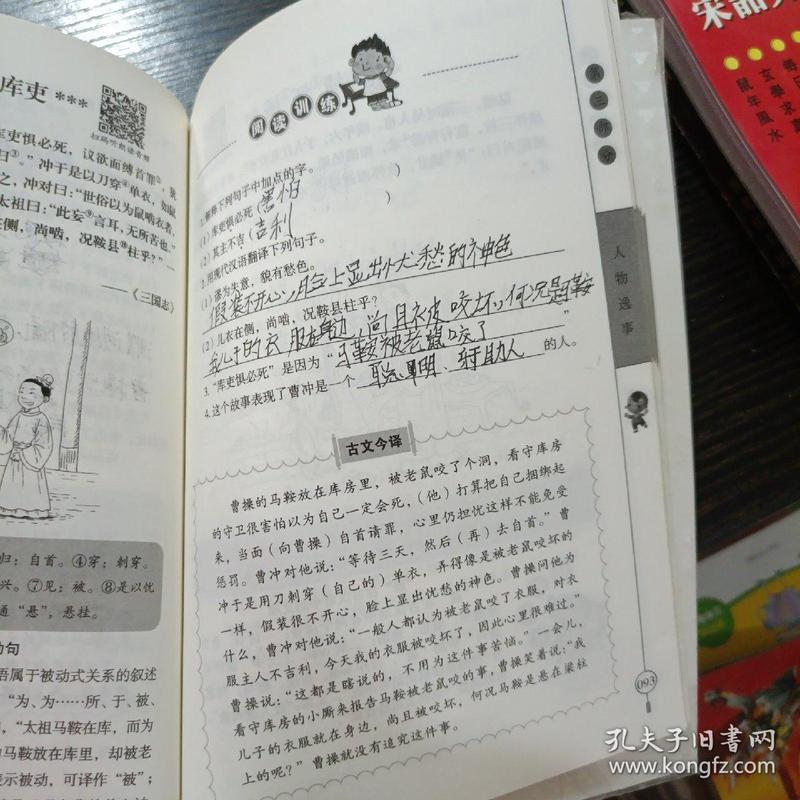 库吏 ***
扫码听朗读音频
库吏惧必死，议欲面缚首罪②，犹
曰③。”冲于是以刀穿④单衣，如鼠
之，冲对曰：“世俗以为鼠啮衣者，
太祖曰：“此妄⑨言耳，无所苦也。”
在侧，尚啮，况鞍县⑧柱乎？”一
——《三国志》
归：自首。④穿：刺穿。
兴。⑦见：被。⑧是以忧
通“悬”，悬挂。
动句
语属于被动式关系的叙述
“为、为……所、于、被、
，“太祖马鞍在库，而为
的马鞍放在库里，却被老
表示被动，可译作“被”；
阅读训练
1.解释下列句子中加点的字。
(1) 库吏惧必死（害怕）
(2) 其主不吉（吉利）
2.用现代汉语翻译下列句子。
(1) 谬为失意，貌有愁色。
假装不开心，脸上显出忧愁的神色
(2) 儿衣在侧，尚啮，况鞍县柱乎？
我儿子的衣服在身边，尚且衣皮咬坏，何况是马鞍
3.“库吏惧必死”是因为“马鞍被老鼠咬了”
4.这个故事表现了曹冲是一个 聪明、乐于助人 的人。
古文今译
曹操的马鞍放在库房里，被老鼠咬了个洞，看守库房
的守卫很害怕以为自己一定会死，（他）打算把自己捆绑起
来，当面（向曹操）自首请罪，心里仍担忧这样不能免受
惩罚。曹冲对他说：“等待三天，然后（再）去自首。”曹
冲于是用刀刺穿（自己的）单衣，弄得像是被老鼠咬坏的
一样，假装很不开心，脸上显出忧愁的神色。曹操问他为
什么，曹冲对他说：“一般人都认为被老鼠咬了衣服，对衣
服主人不吉利，今天我的衣服被咬坏了，因此心里很难过。”
曹操说：“这都是瞎说的，不用为这件事苦恼。”一会儿，
看守库房的小厮来报告马鞍被老鼠咬的事，曹操笑着说：“我
儿子的衣服就在身边，尚且被咬坏，何况马鞍是悬在梁柱
上的呢？”曹操就没有追究这件事。
第三部分
人物逸事
093
鼠年風水
孔夫子旧书网
www.kongfz.com